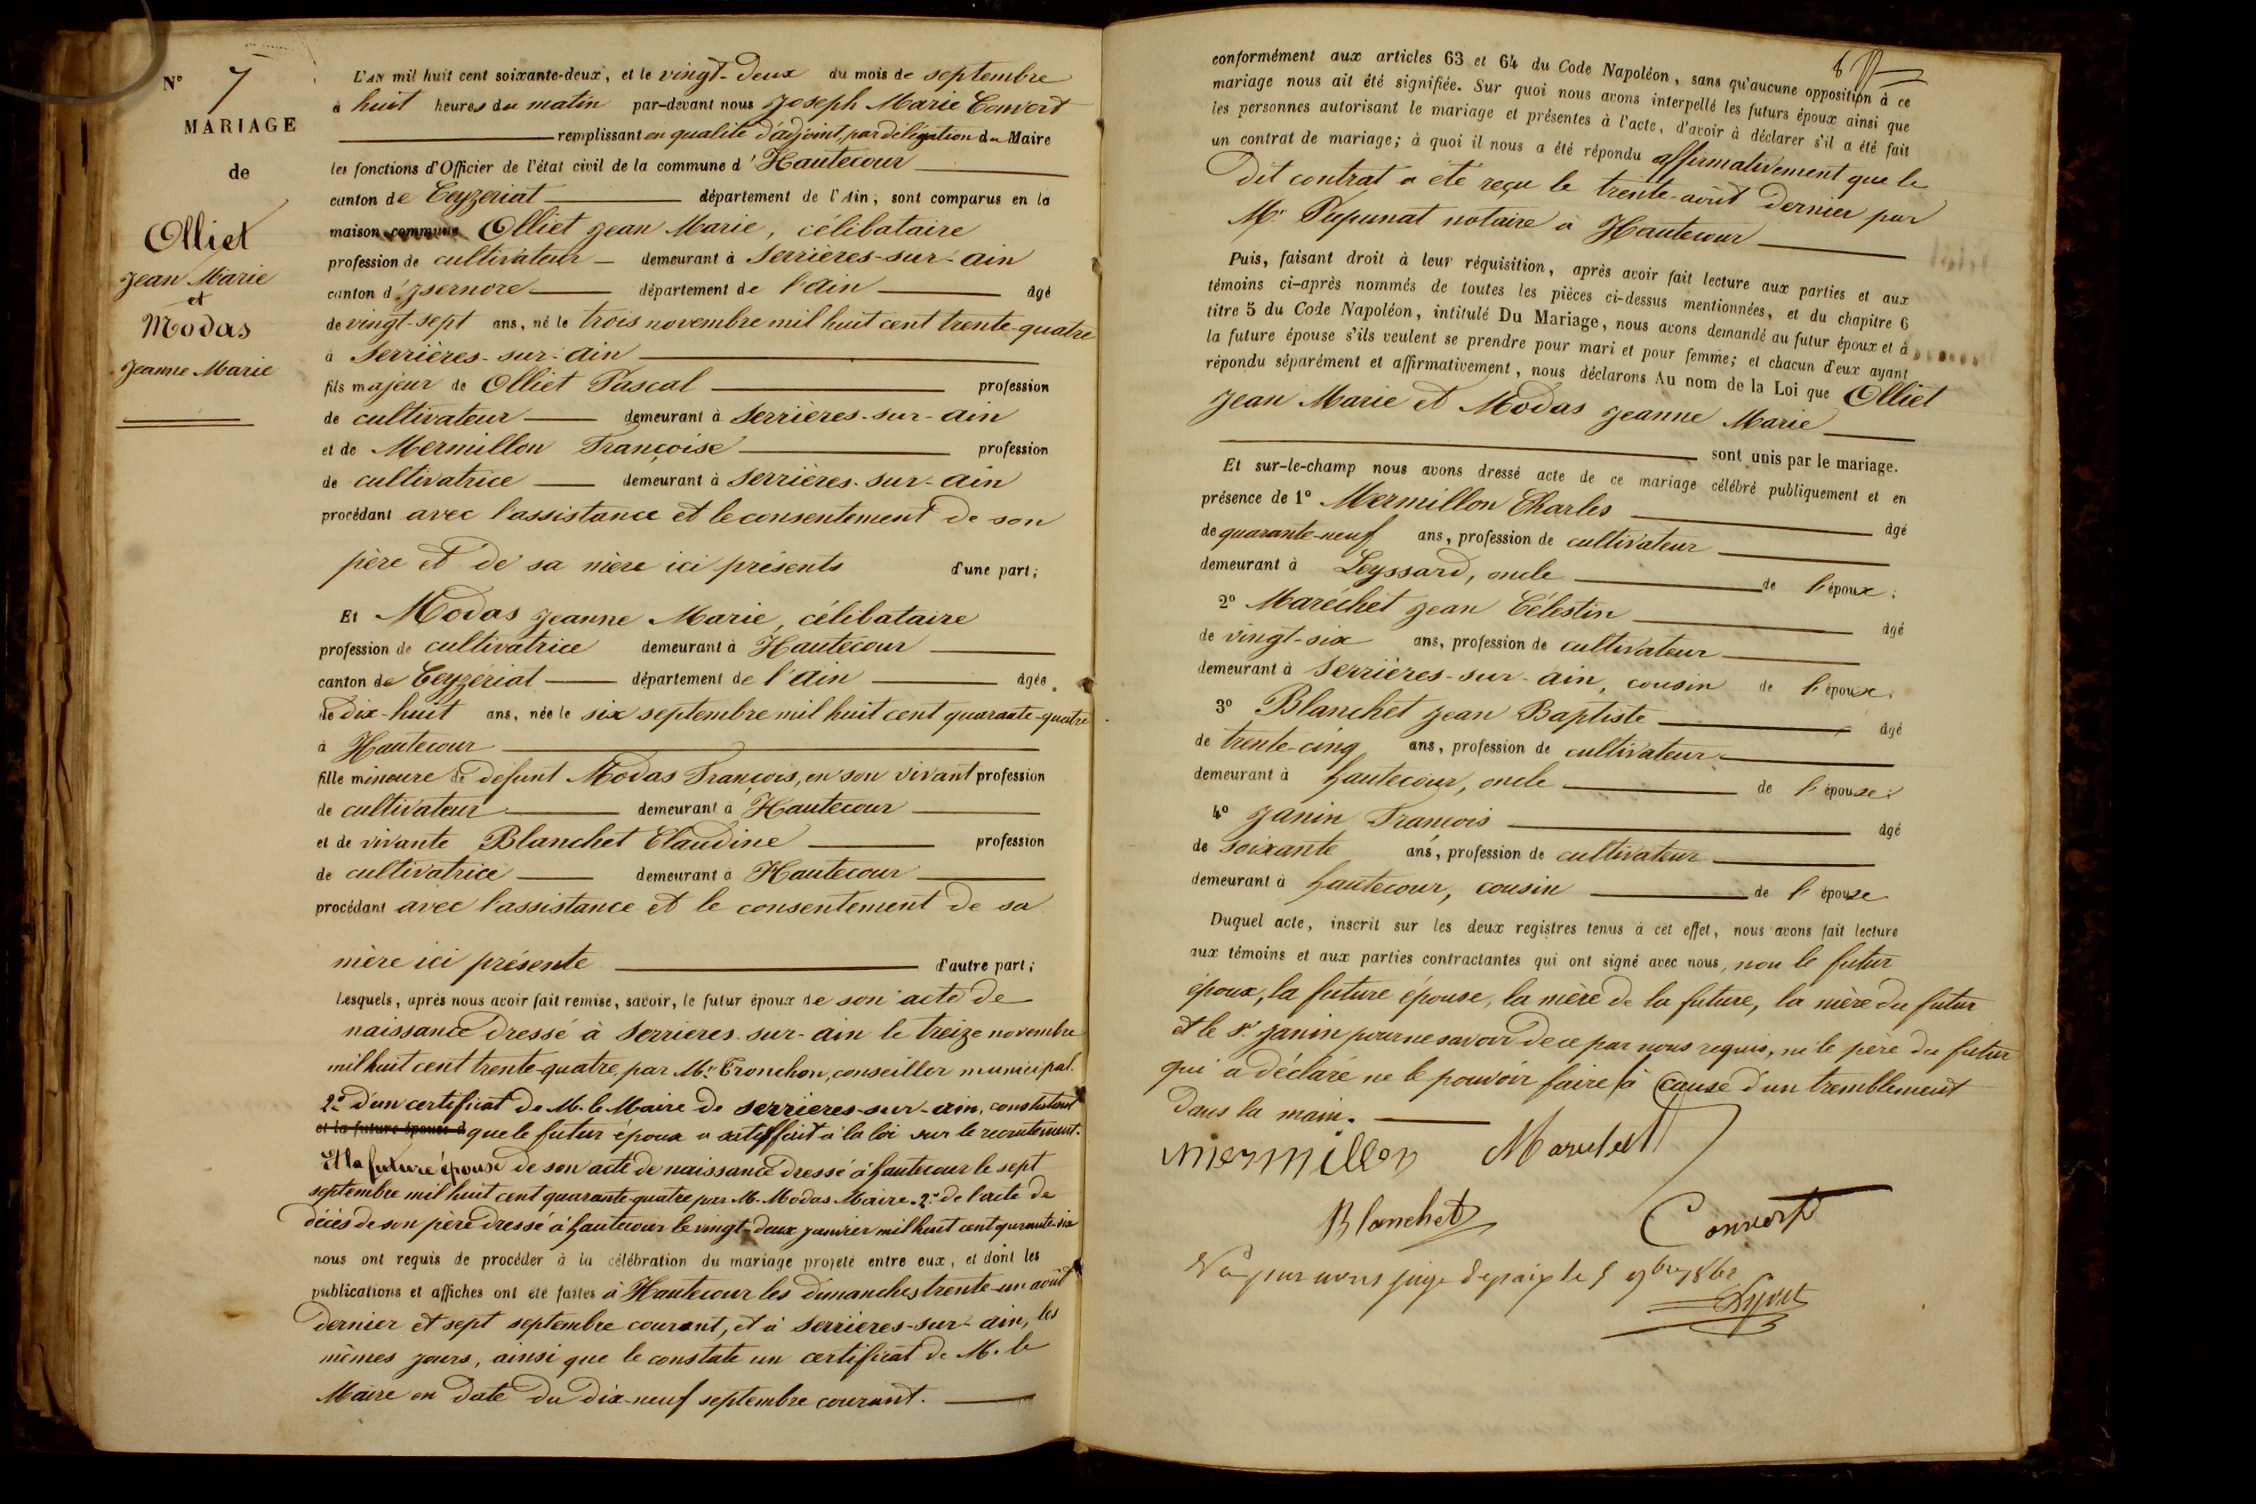 N° 7
MARIAGE
de
Olliet
Jean Marie
et
Modas
Jeanne Marie
L'AN mil huit cent soixante-deux, et le vingt-deux du mois de septembre
à huit heures du matin par-devant nous Joseph Marie Convert
remplissant en qualité d'adjoint, par délégation du Maire
les fonctions d'Officier de l'état civil de la commune d'Hautecour
canton de Ceyzeriat département de l'Ain; sont comparus en la
maison commune Olliet Jean Marie, célibataire
profession de cultivateur demeurant à Serrières-sur-ain
canton d'Jsernore département de l'ain âgé
de vingt-sept ans, né le trois novembre mil huit cent trente-quatre
à Serrières-sur-ain
fils majeur de Olliet Pascal profession
de cultivateur demeurant à Serrières-sur-ain
et de Mermillon Françoise profession
de cultivatrice demeurant à Serrières-sur-ain
procédant avec l'assistance et le consentement de son
père et de sa mère ici présents d'une part;
Et Modas Jeanne Marie, célibataire
profession de cultivatrice demeurant à Hautecour
canton de Ceyzériat département de l'ain âgée
de dix-huit ans, née le six septembre mil huit cent quarante-quatre
à Hautecour
fille mineure de défunt Modas François, en son vivant profession
de cultivateur demeurant à Hautecour
et de vivante Blanchet Claudine profession
de cultivatrice demeurant à Hautecour
procédant avec l'assistance et le consentement de sa
mère ici présente d'autre part;
Lesquels, après nous avoir fait remise, savoir, le futur époux de son acte de
naissance dressé à Serrieres-sur-ain le treize novembre
mil huit cent trente-quatre, par Mr Tronchon, conseiller municipal.
2° d'un certificat de M. le Maire de Serrieres-sur-ain, constatant
et la future épouse d que le futur époux a satisffait à la loi sur le recrutement.
Et la future épouse de son acte de naissance dressé à hautecour le sept
septembre mil huit cent quarante-quatre par M. Modas Maire. 2° de l'acte de
décès de son père dressé à hautecour le vingt-deux janvier mil huit cent quarante-six
nous ont requis de procéder à la célébration du mariage projeté entre eux, et dont les
publications et affiches ont été faites à Hautecour les dimanches trente-un août
dernier et sept septembre courant, et à Serrieres-sur-ain, les
mêmes jours, ainsi que le constate un certificat de M. le
Maire en date du dix-neuf septembre courant.
8
conformément aux articles 63 et 64 du Code Napoléon, sans qu'aucune opposition à ce
mariage nous ait été signifiée. Sur quoi nous avons interpellé les futurs époux ainsi que
les personnes autorisant le mariage et présentes à l'acte, d'avoir à déclarer s'il a été fait
un contrat de mariage; à quoi il nous a été répondu affirmativement que le
dit contrat a été reçu le trente-août dernier par
Mr Pupunat notaire à Hautecour
Puis, faisant droit à leur réquisition, après avoir fait lecture aux parties et aux
témoins ci-après nommés de toutes les pièces ci-dessus mentionnées, et du chapitre 6
titre 5 du Code Napoléon, intitulé Du Mariage, nous avons demandé au futur époux et à
la future épouse s'ils veulent se prendre pour mari et pour femme; et chacun d'eux ayant
répondu séparément et affirmativement, nous déclarons Au nom de la Loi que Olliet
Jean Marie et Modas Jeanne Marie
sont unis par le mariage.
Et sur-le-champ nous avons dressé acte de ce mariage célébré publiquement et en
présence de 1° Mermillon Charles âgé
de quarante-neuf ans, profession de cultivateur
demeurant à Leyssard, oncle de l'époux;
2° Maréchet Jean Célestin âgé
de vingt-six ans, profession de cultivateur
demeurant à Serrières-sur-ain, cousin de l'époux;
3° Blanchet Jean Baptiste âgé
de trente-cinq ans, profession de cultivateur
demeurant à hautecour, oncle de l'épouse;
4° Janin François âgé
de soixante ans, profession de cultivateur
demeurant à hautecour, cousin de l'épouse
Duquel acte, inscrit sur les deux registres tenus à cet effet, nous avons fait lecture
aux témoins et aux parties contractantes qui ont signé avec nous, non le futur
époux, la future épouse, la mère de la future, la mère du futur
et le Sr Janin pour ne savoir de ce par nous requis, ni le père du futur
qui a déclaré ne le pouvoir faire à cause d'un tremblement
dans la main.
Mermillon Marechet
Blanchet Convert
Vu par nous juge de paix le 5 9bre 1862